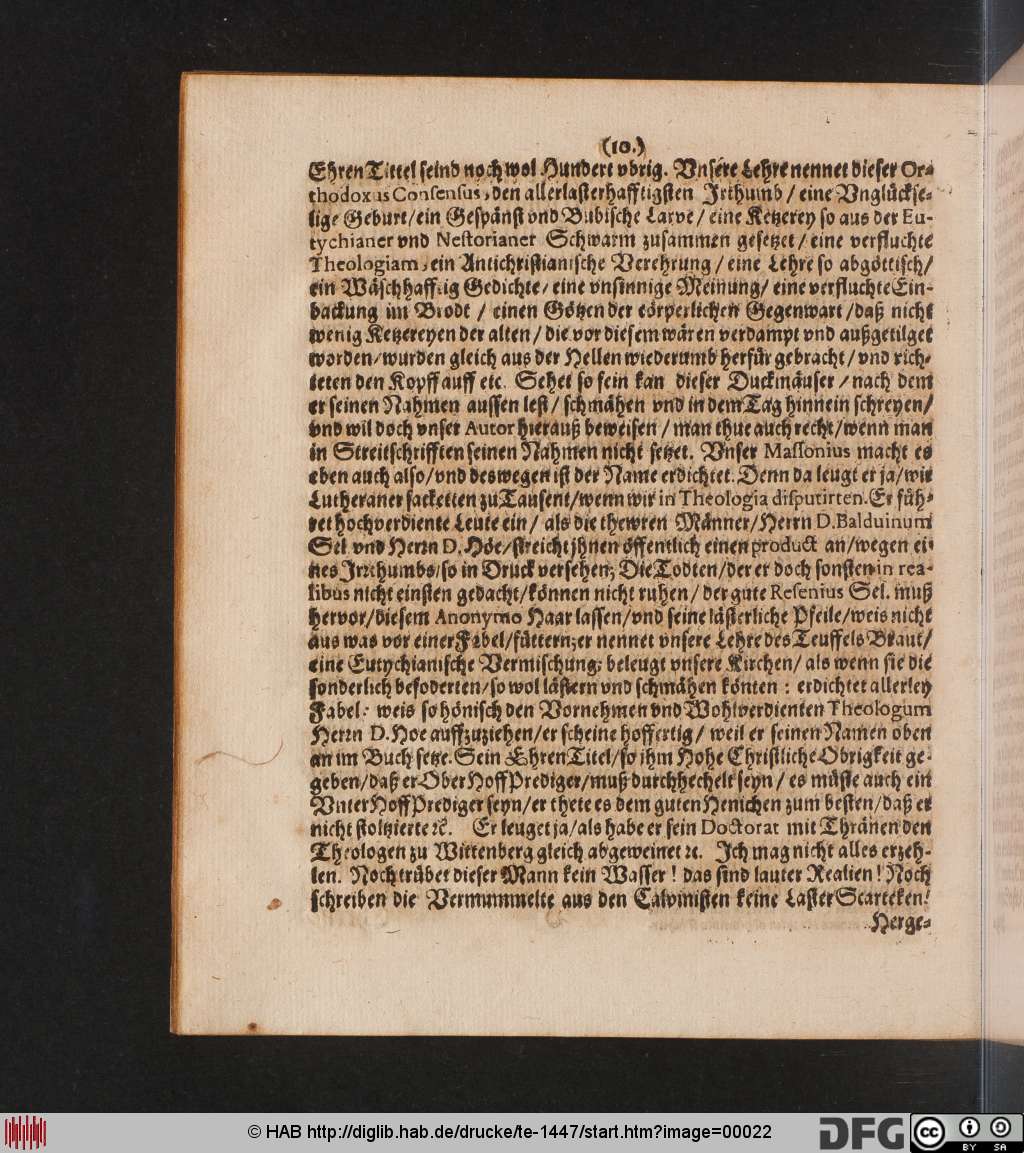 (10.)
EhrenTittel seind noch wol Hundert vbrig. Vnsere Lehre nennet dieser Or-
thodoxus Consensus, den allerlasterhafftigsten Irthumb / eine Vnglückse-
lige Geburt/ein Gespänst vnd Bubische Larve / eine Ketzerey so aus der Eu-
tychianer vnd Nestorianer Schwarm zusammen gesetzet / eine verfluchte
Theologiam, ein Antichristianische Verehrung / eine Lehre so abgöttisch/
ein Wäschhafftig Gedichte/ eine vnsinnige Meinung/ eine verfluchte Ein-
backung im Brodt / einen Götzen der cörperlichen Gegenwart / daß nicht
wenig Ketzereyen der alten / die vor diesem wären verdampt vnd außgetilget
worden/wurden gleich aus der Hellen wiederumb herfür gebracht / vnd rich-
teten den Kopff auff etc. Sehet so fein kan dieser Duckmäuser / nach dem
er seinen Nahmen aussen lest / schmähen vnd in dem Tag hinnein schreyen/
vnd wil doch vnser Autor hierauß beweisen / man thue auch recht/wenn man
in Streitschrifften seinen Nahmen nicht setzet. Vnser Massonius macht es
eben auch also/vnd deswegen ist der Name erdichtet. Denn da leugt er ja/wir
Lutheraner sacketten zu Tausent/wenn wir in Theologia disputirten. Er füh-
ret hochverdiente Leute ein / als die thewren Männer/Herrn D. Balduinum
Sel vnd Herrn D. Höe/streicht jhnen öffentlich einen product an/wegen ei-
nes Irrthumbs/so in Druck versehen; Die Todten/der er doch sonsten in rea-
libus nicht einsten gedacht/können nicht ruhen / der gute Resenius Sel. muß
hervor/diesem Anonymo Haar lassen/vnd seine lästerliche Pfeile/weis nicht
aus was vor einer Fabel/füttern; er nennet vnsere Lehre des Teuffels Braut/
eine Eutychianische Vermischung; beleugt vnsere Kirchen/ als wenn sie die
sonderlich befoderten/so wol lästern vnd schmähen könten : erdichtet allerley
Fabel: weis so hönisch den Vornehmen vnd Wohlverdienten Theologum
Herrn D. Hoe auffzuziehen/er scheine hoffertig / weil er seinen Namen oben
an im Buch setze. Sein EhrenTitel/so ihm Hohe Christliche Obrigkeit ge-
geben/daß er OberHoffPrediger/muß durchhechelt seyn / es müste auch ein
VnterHoffPrediger seyn/er thete es dem guten Henichen zum besten/daß er
nicht stoltzierte ꝛc. Er leuget ja/als habe er sein Doctorat mit Thränen den
Theologen zu Wittenberg gleich abgeweinet ꝛc. Ich mag nicht alles erzeh-
len. Noch trübet dieser Mann kein Wasser ! das sind lauter Realien ! Noch
schreiben die Vermummelte aus den Calvinisten keine LasterScarteken!
Herge-
© HAB http://diglib.hab.de/drucke/te-1447/start.htm?image=00022
DFG
cc
BY SA